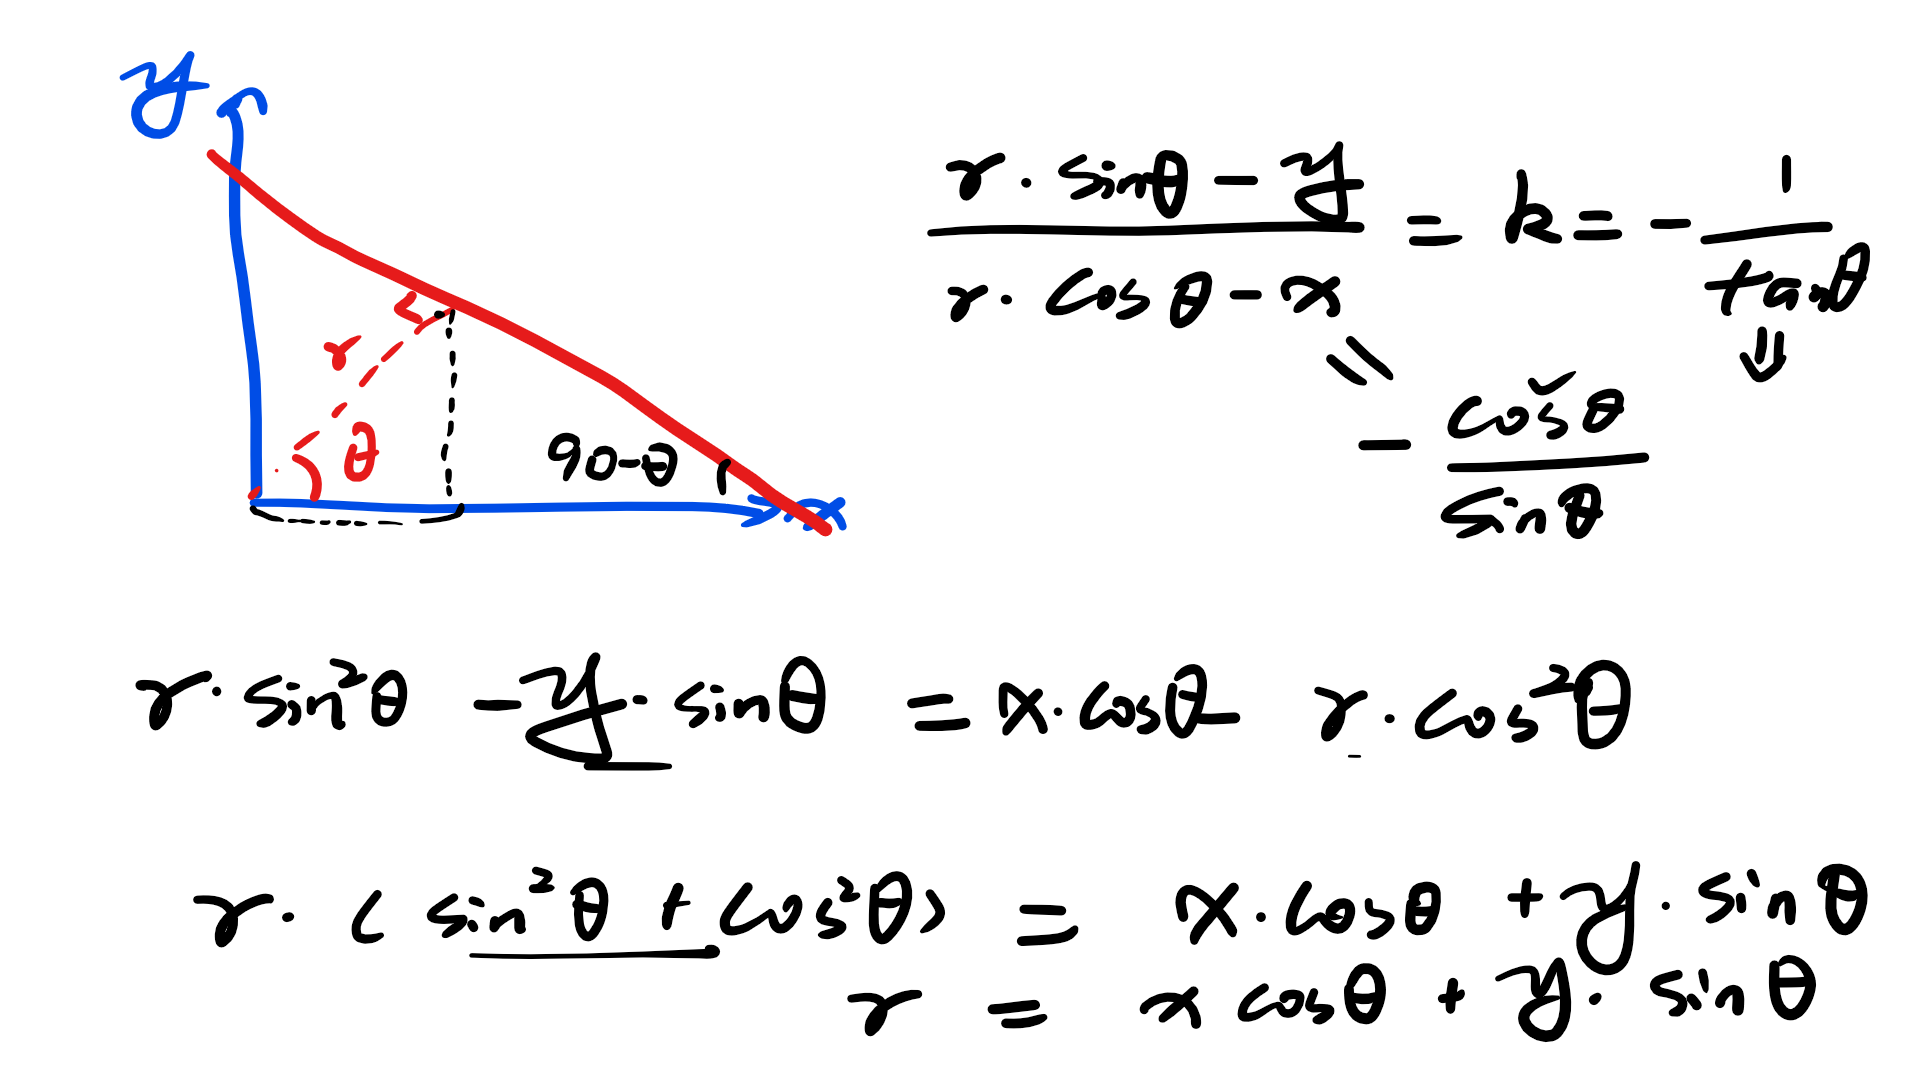 y
r
θ
90-θ
x
r·sinθ-y / r·cosθ-x = k = - 1 / tanθ
= - cosθ / sinθ
r·sin²θ -y·sinθ = x·cosθ- r·cos²θ
r·(sin²θ + cos²θ) = x·cosθ + y·sinθ
r = x cosθ + y·sinθ